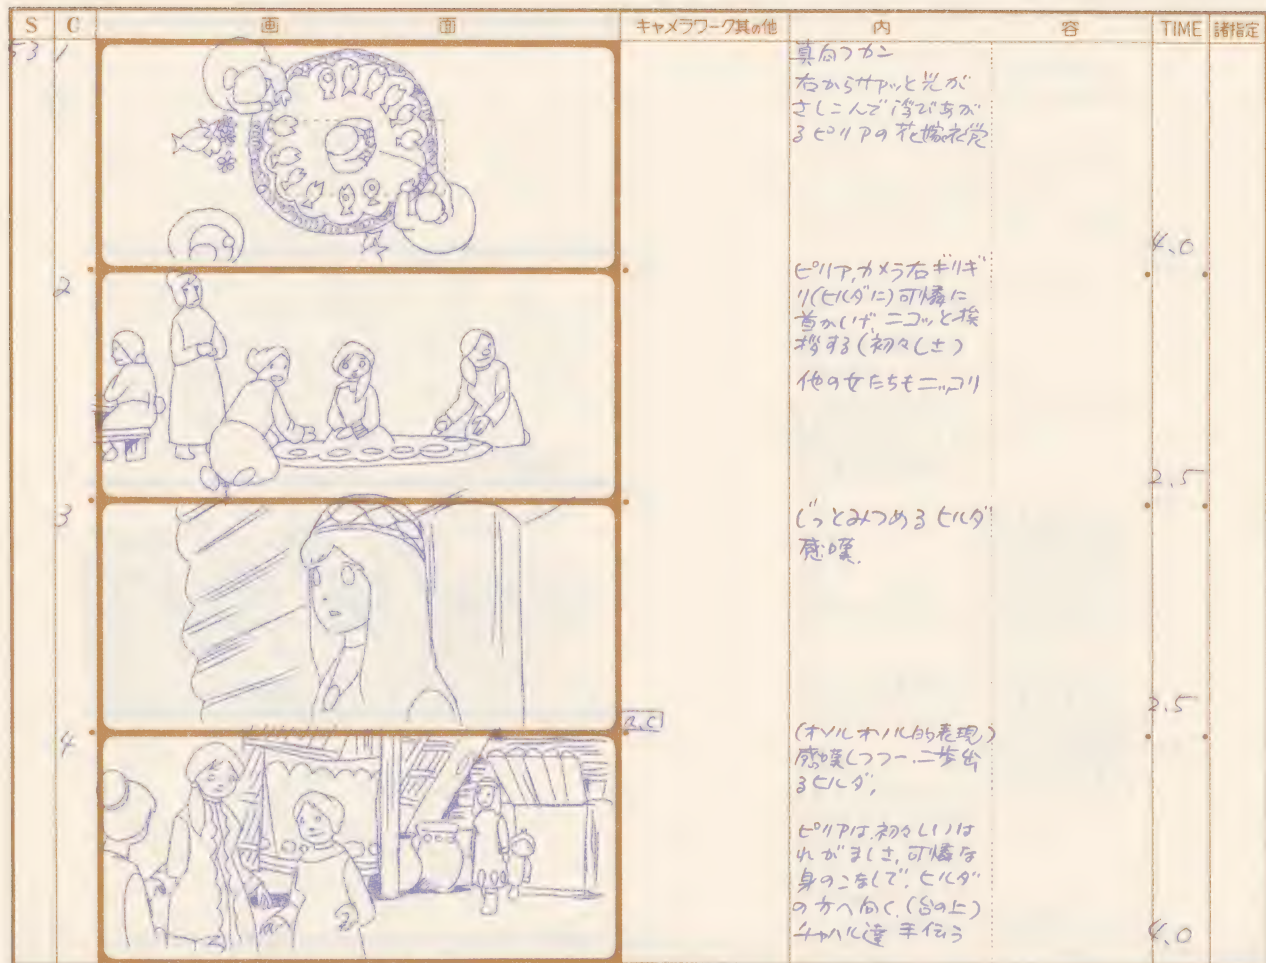 S C 画 面 キャメラワーク其の他 内 容 TIME 諸指定
53 1
真向フカン
右からサアッと光が
さしこんで浮びあが
るピリアの花嫁衣裳
4.0
2
ピリア、カメラ右ギリギ
リ(ヒルダに)可憐に
首かしげ、ニコッと挨
拶する(初々しさ)
他の女たちもニッコリ
2.5
3
じっとみつめるヒルダ
感嘆.
2.5
4
(オソルオソル的表現)
感嘆しつつ一、二歩出
るヒルダ、
ピリアは、初々しいは
れがましさ、可憐な
身のこなしで、ヒルダ
の方へ向く、(台の上)
チャハル達 手伝う
4.0